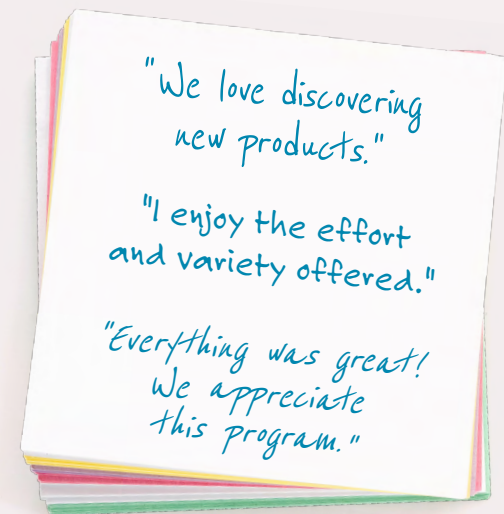 "We love discovering
new products."
"I enjoy the effort
and variety offered."
"Everything was great!
We appreciate
this program."